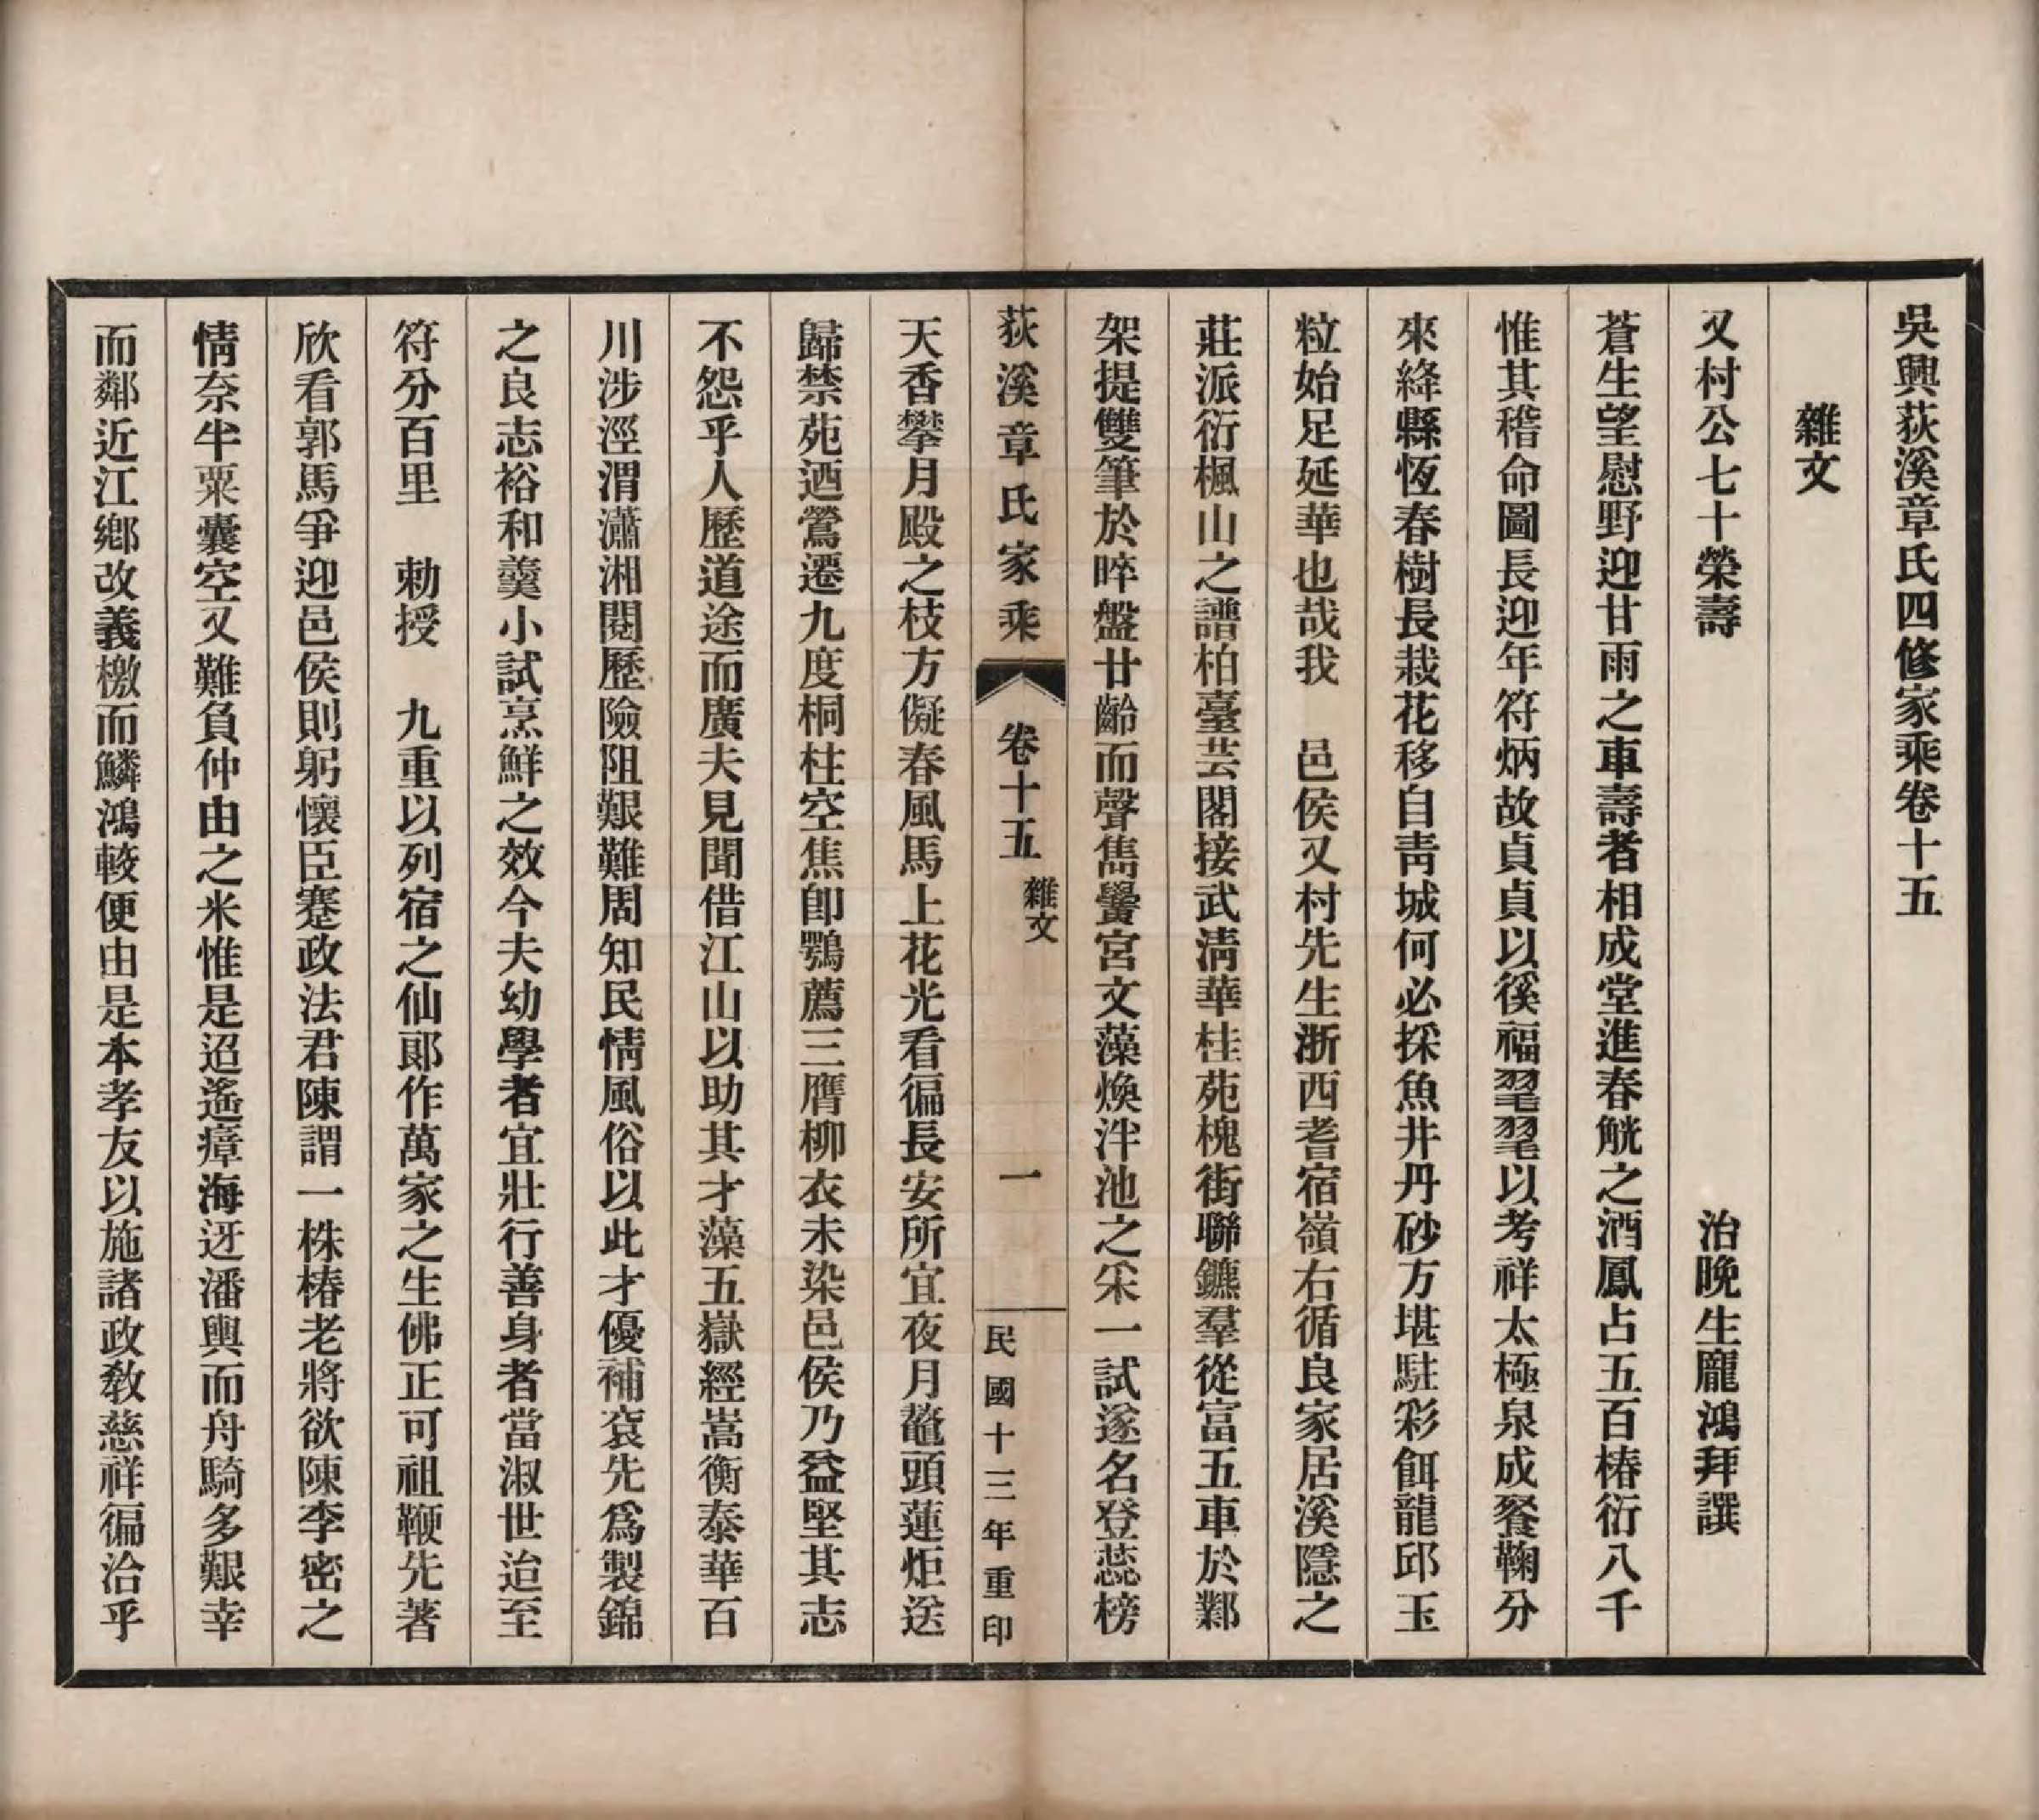 吳興荻溪章氏四修家乘卷十五
雜文
又村公七十榮壽 治晚生龐鴻拜譔
蒼生望慰野迎甘雨之車壽者相成堂進春觥之酒鳳占五百椿衍八千
惟其稽命圖長迎年符炳故貞貞以徯福毣毣以考祥太極泉成餐鞠分
來絳縣恆春樹長栽花移自靑城何必採魚井丹砂方堪駐彩餌龍邱玉
粒始足延華也哉我 邑侯又村先生浙西耆宿嶺右循良家居溪隱之
莊派衍楓山之譜柏臺芸閣接武淸華桂苑槐街聯鑣羣從富五車於鄴
架提雙筆於晬盤廿齡而聲雋黌宮文藻煥泮池之采一試遂名登蕊榜
天香攀月殿之枝方儗春風馬上花光看徧長安所宜夜月鼇頭蓮炬送
歸禁苑迺鶯遷九度桐柱空焦卽鶚薦三膺柳衣未染邑侯乃益堅其志
不怨乎人歷道途而廣夫見聞借江山以助其才藻五嶽經嵩衡泰華百
川涉涇渭瀟湘閱歷險阻艱難周知民情風俗以此才優補袞先爲製錦
之良志裕和羹小試烹鮮之效今夫幼學者宜壯行善身者當淑世迨至
符分百里 勅授 九重以列宿之仙郞作萬家之生佛正可祖鞭先著
欣看郭馬爭迎邑侯則躬懷臣蹇政法君陳謂一株椿老將欲陳李密之
情奈半粟囊空又難負仲由之米惟是迢遙瘴海迓潘輿而舟騎多艱幸
而鄰近江鄉改義檄而鱗鴻較便由是本孝友以施諸政敎慈祥徧洽乎
荻溪章氏家乘 卷十五 雜文 一 民國十三年重印